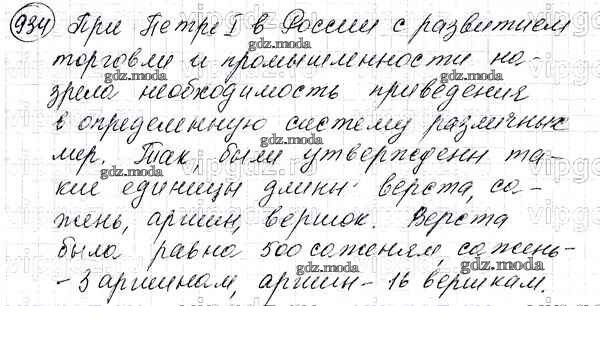 934 При Петре I в России с развитием
торговли и промышленности на-
зрела необходимость приведения
в определенную систему различных
мер. Так, были утверждены та-
кие единицы длины: верста, са-
жень, аршин, вершок. Верста
была равна 500 саженям, сажень-
- 3 аршинам, аршин - 16 вершкам.
gdz.moda
gdz.moda
gdz.moda
gdz.moda
gdz.moda
gdz.moda
gdz.moda